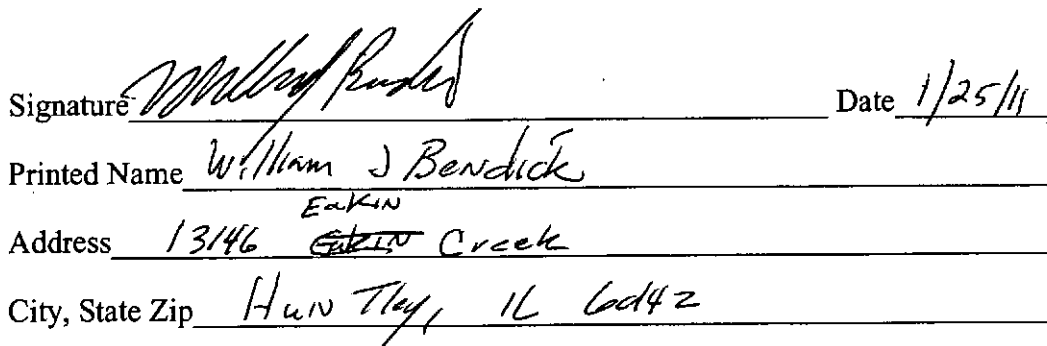 Signature Date 1/25/11
Printed Name William J Bendick
Eakin
Address 13146 Eakin Creek
City, State Zip Huntley, IL